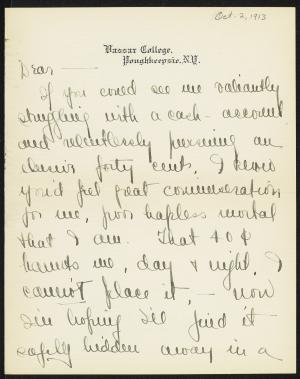 Oct. 2, 1913
Vassar College,
Poughkeepsie, N.Y.
Dear ——
If you could see me valiantly
struggling with a cash-account
and relentlessly pursuing an
elusive forty cents, I know
you'd feel great commiseration
for me, poor hapless mortal
that I am. That 40¢
haunts me, day & night, I
cannot place it, – now
I'm hoping I'll find it
safely hidden away in a